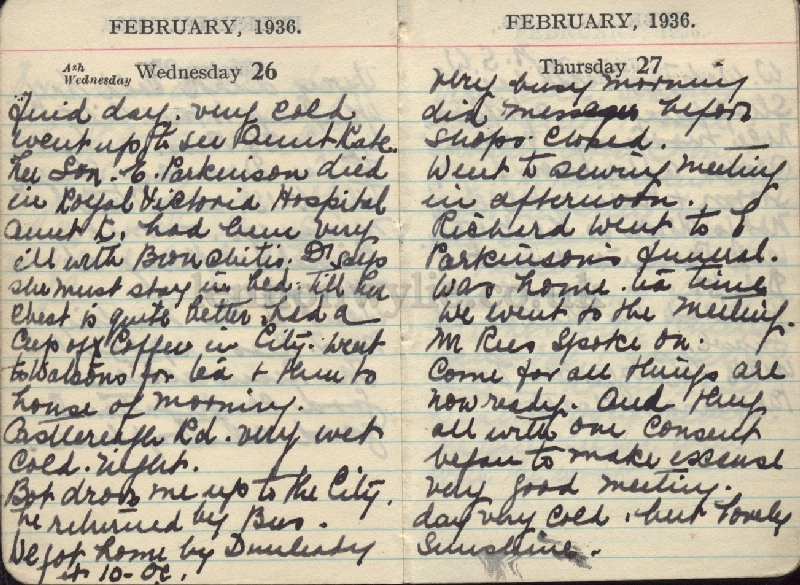 FEBRUARY, 1936.
Ash Wednesday Wednesday 26
day. very cold
went up to see Aunt Kate.
her Son. E. Parkinson died
in Royal Victoria Hospital
Aunt K. had been very
ill with Bronchitis. Dr says
she must stay in bed. till her
Chest is quite better. had a
Cup of Coffee in City. went
to Watsons for tea + then to
house of morning.
Castlereagh Rd. very wet
Cold. night.
Bob drove me up to the City.
he returned by Bus.
We got home by
at 10-oc.
FEBRUARY, 1936.
Thursday 27
Very busy morning
did messages before
Shops. Closed.
Went to sewing meeting
in afternoon.
Richard went to E
Parkinson's funeral.
was home. tea time
We went to the Meeting.
Mr Rees Spoke on.
Come for all things are
now ready. And they
all with one Consent
began to make excuse
very good meeting.
day very cold. but lovely
Sunshine.